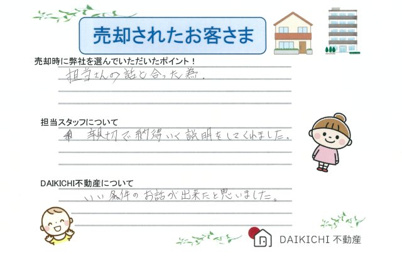 売却されたお客さま
売却時に弊社を選んでいただいたポイント！
担当さんの話と合った為.
担当スタッフについて
親切で納得いく説明をしてくれました。
DAIKICHI不動産について
いい条件のお話が出来たと思いました。
DAIKICHI 不動産